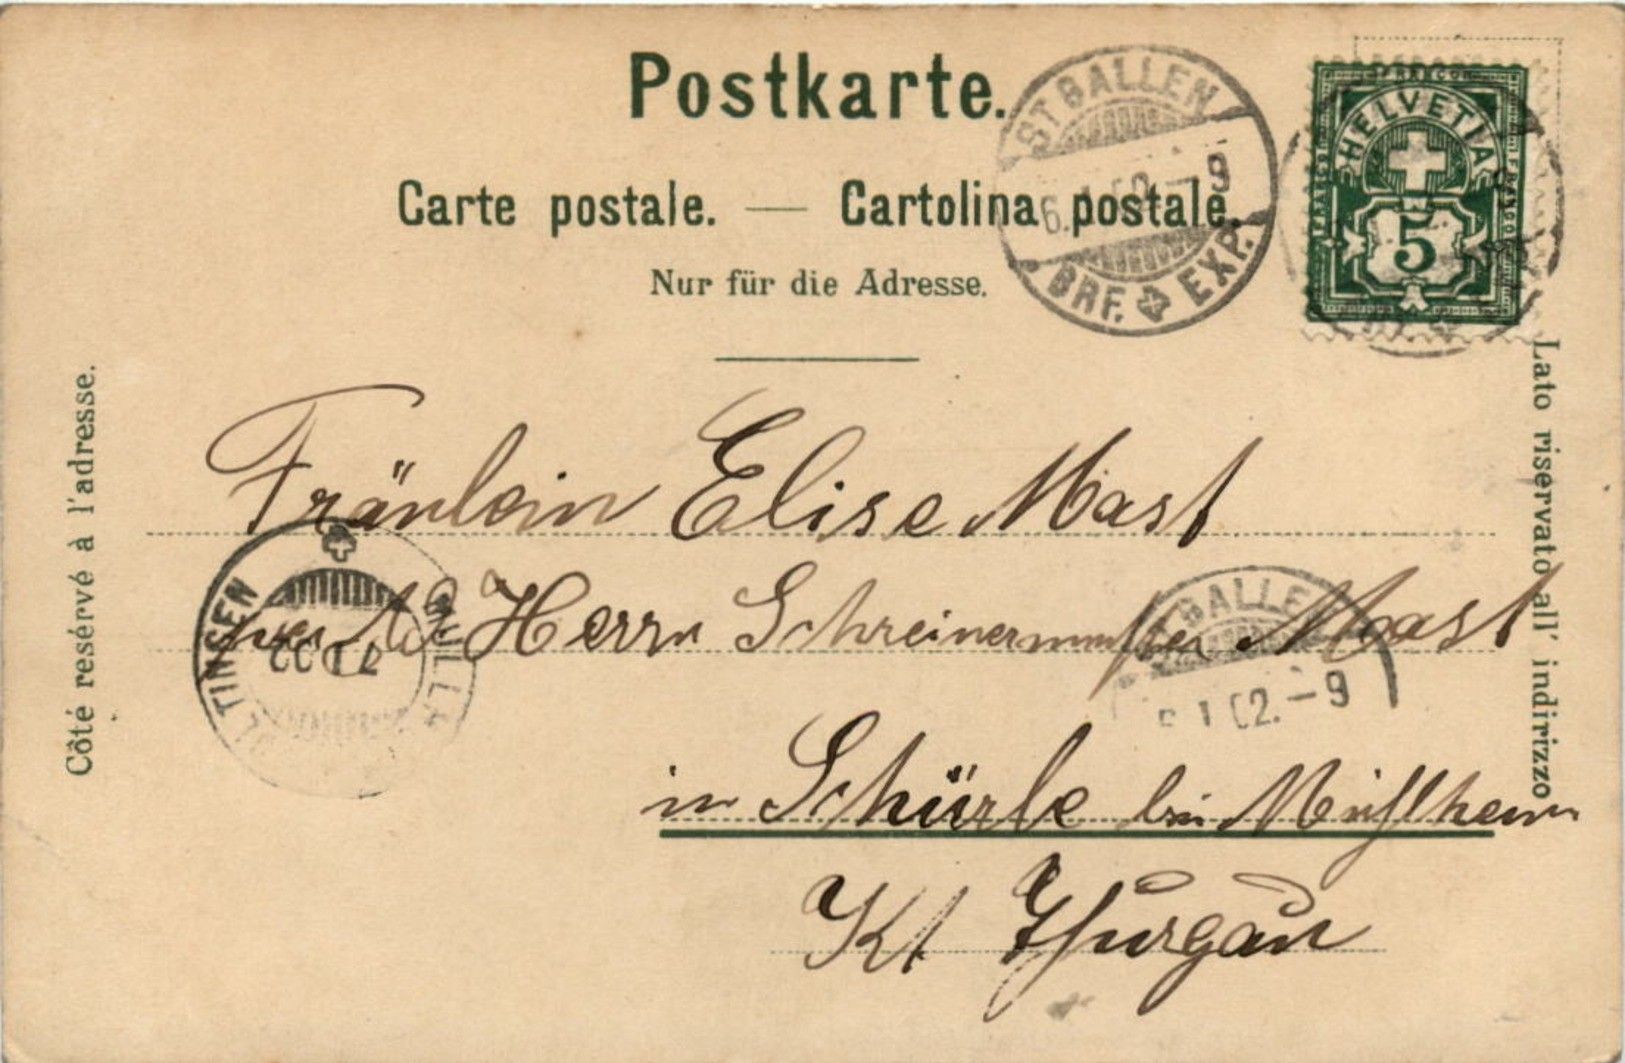 Postkarte.
Carte postale. — Cartolina postale.
Nur für die Adresse.
ST. GALLEN
6. I 02. – 9
BRF. EXP.
FRANCO
HELVETIA
5
Côté resérvé à l'adresse.
Lato riservato all' indirizzo
Fräulein Elise Mast
Herrn Schreinermeister Mast
ST. GALLEN
I 02. – 9
TINGEN
WILLA
in Schürle bei Mühlheim
Kt Thurgau